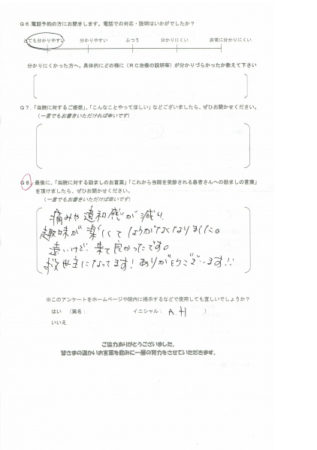 Q6 電話予約の方にお聞きします。電話での対応・説明はいかがでしたか?
とても分かりやすい 分かりやすい ふつう 分かりにくい 非常に分かりにくい
分かりにくかった方へ、具体的にどの様に(RC治療の説明等)が分かりづらかったか教えて下さい
Q7 「当院に対するご感想」、「こんなことやってほしい」などございましたら、ぜひお聞かせください。
(一言でもお書きいただければ幸いです)
Q8 最後に、「当院に対する励ましのお言葉」「これから当院を受診される患者さんへの励ましの言葉」
を頂けましたら、ぜひお聞かせください。
(一言でもお書きいただければ幸いです)
痛みや違和感が減り
趣味が楽しくてしょうがなくなりました。
遠いけど、来て良かったです。
お世話になってます!ありがとうございます!!
※このアンケートをホームページや院内に掲示するなどで使用しても宜しいでしょうか?
はい (匿名 ・ イニシャル: A H )
いいえ
ご協力ありがとうございました。
皆さまの温かいお言葉を励みに一層の努力をさせていただきます。